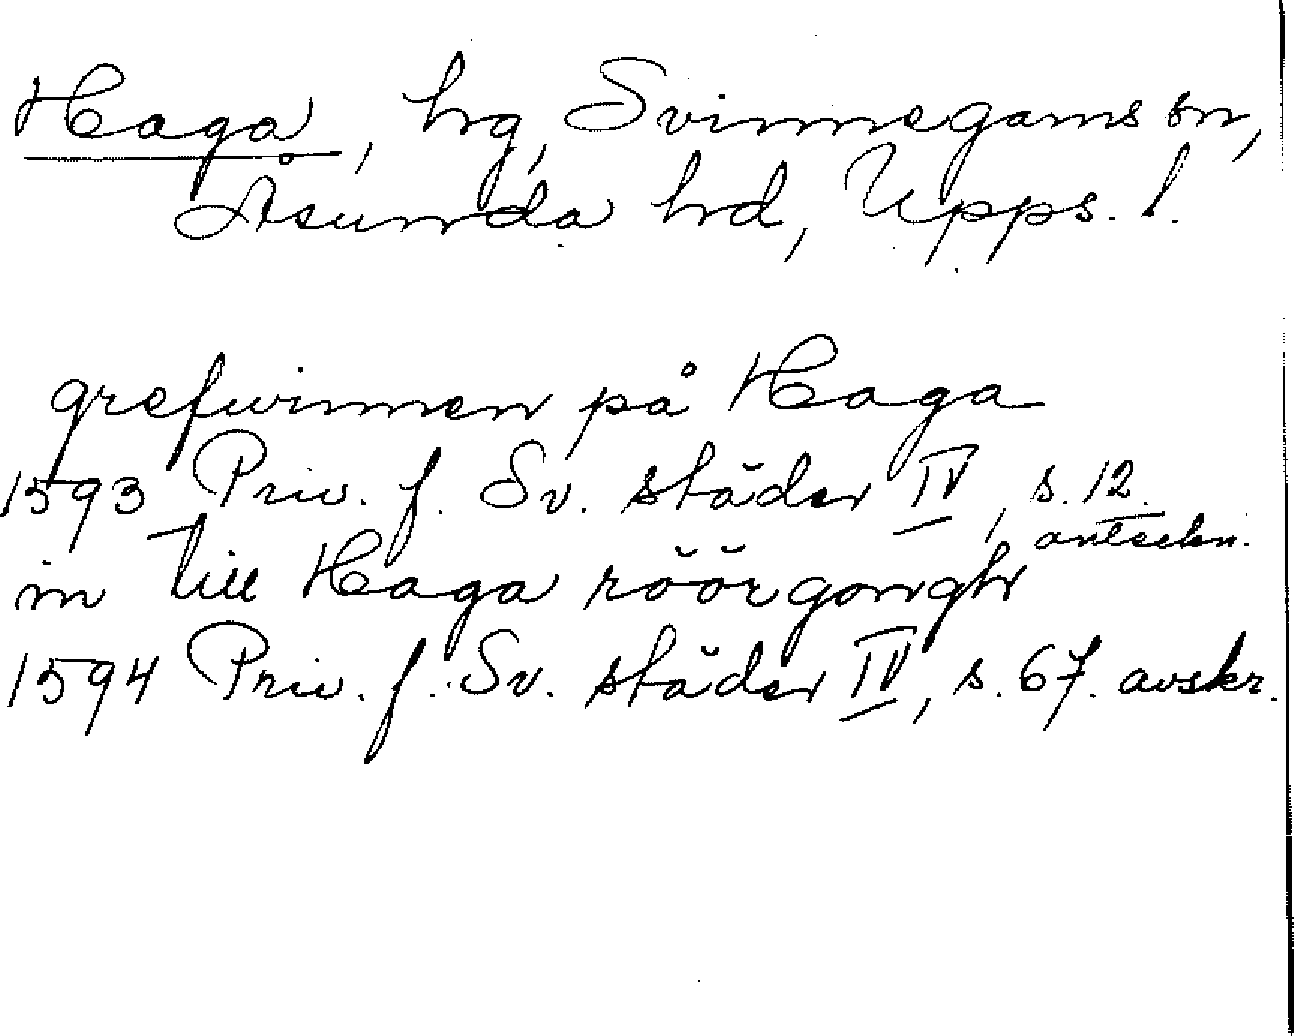 Haga, hg, Svinnegarns sn,
Åsunda hd, Upps. l.
grefwinnen på Haga
1593 Priv. f. Sv. städer IV, s. 12.
anteckn.
in till Haga röörgongh
1594 Priv. f. Sv. städer IV, s. 67. avskr.